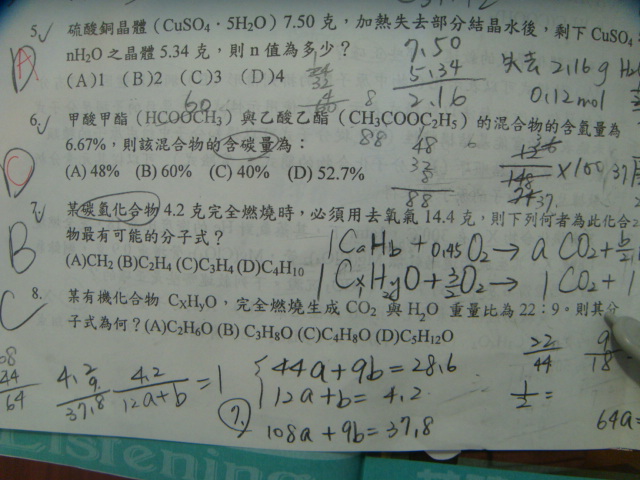 5. 硫酸銅晶體（CuSO4・5H2O）7.50 克，加熱失去部分結晶水後，剩下 CuSO4
nH2O 之晶體 5.34 克，則 n 值為多少？
(A)1 (B)2 (C)3 (D)4
A
7.50
5.34
2.16
失去 2.16g H2
0.12 mol
6. 甲酸甲酯（HCOOCH3）與乙酸乙酯（CH3COOC2H5）的混合物的含氫量為
6.67%，則該混合物的含碳量為：
(A) 48% (B) 60% (C) 40% (D) 52.7%
C
60
88
48
32
8
88
×100
7. 某碳氫化合物 4.2 克完全燃燒時，必須用去氧氣 14.4 克，則下列何者為此化合
物最有可能的分子式？
(A)CH2 (B)C2H4 (C)C3H4 (D)C4H10
B
1CaHb + 0.45O2 → aCO2 + b/2
8. 某有機化合物 CxHyO，完全燃燒生成 CO2 與 H2O 重量比為 22：9。則其分
子式為何？(A)C2H6O (B) C3H8O (C)C4H8O (D)C5H12O
C
1CxHyO + 3/2O2 → 1CO2 + 1
22/44
9/18
1/2 =
44
64
4.2/37.8
4.2/12a+b = 1
7.
44a + 9b = 28.6
12a + b = 4.2
108a + 9b = 37.8
64a=
Listening